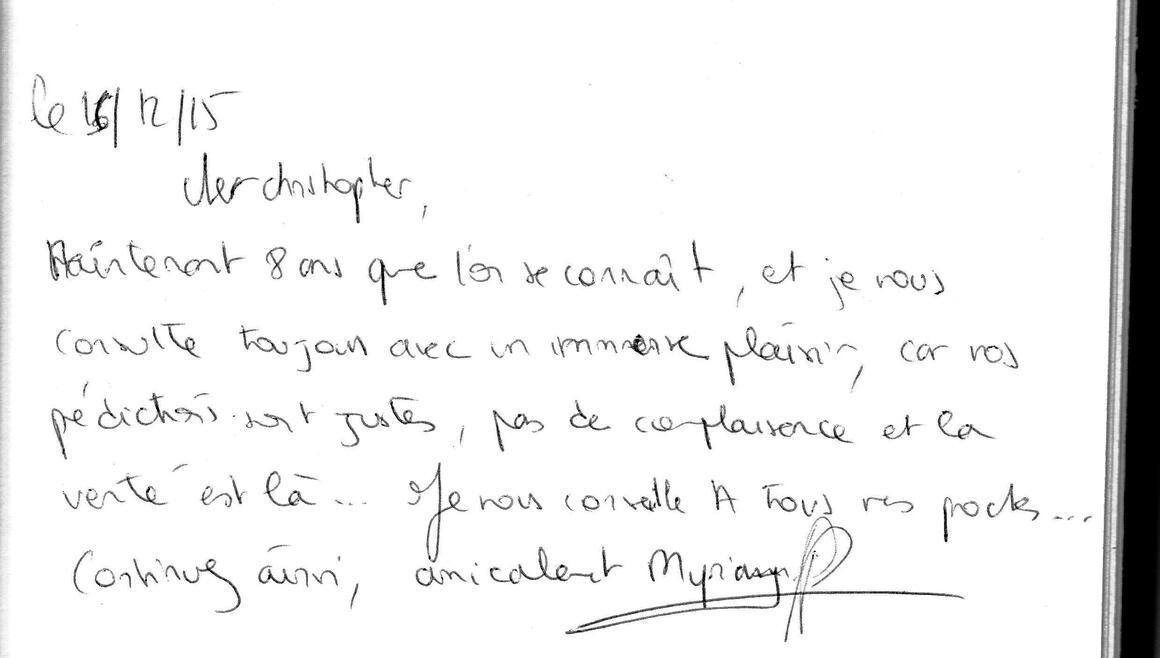 le 15/12/15
cher christopher,
Maintenant 8 ans que l'on se connaît, et je vous
consulte toujours avec un immense plaisir, car vos
prédictions sont justes, pas de complaisence et la
verité est là... Je vous conseille A tous mes proches...
Continuez ainsi, amicalement Myriam